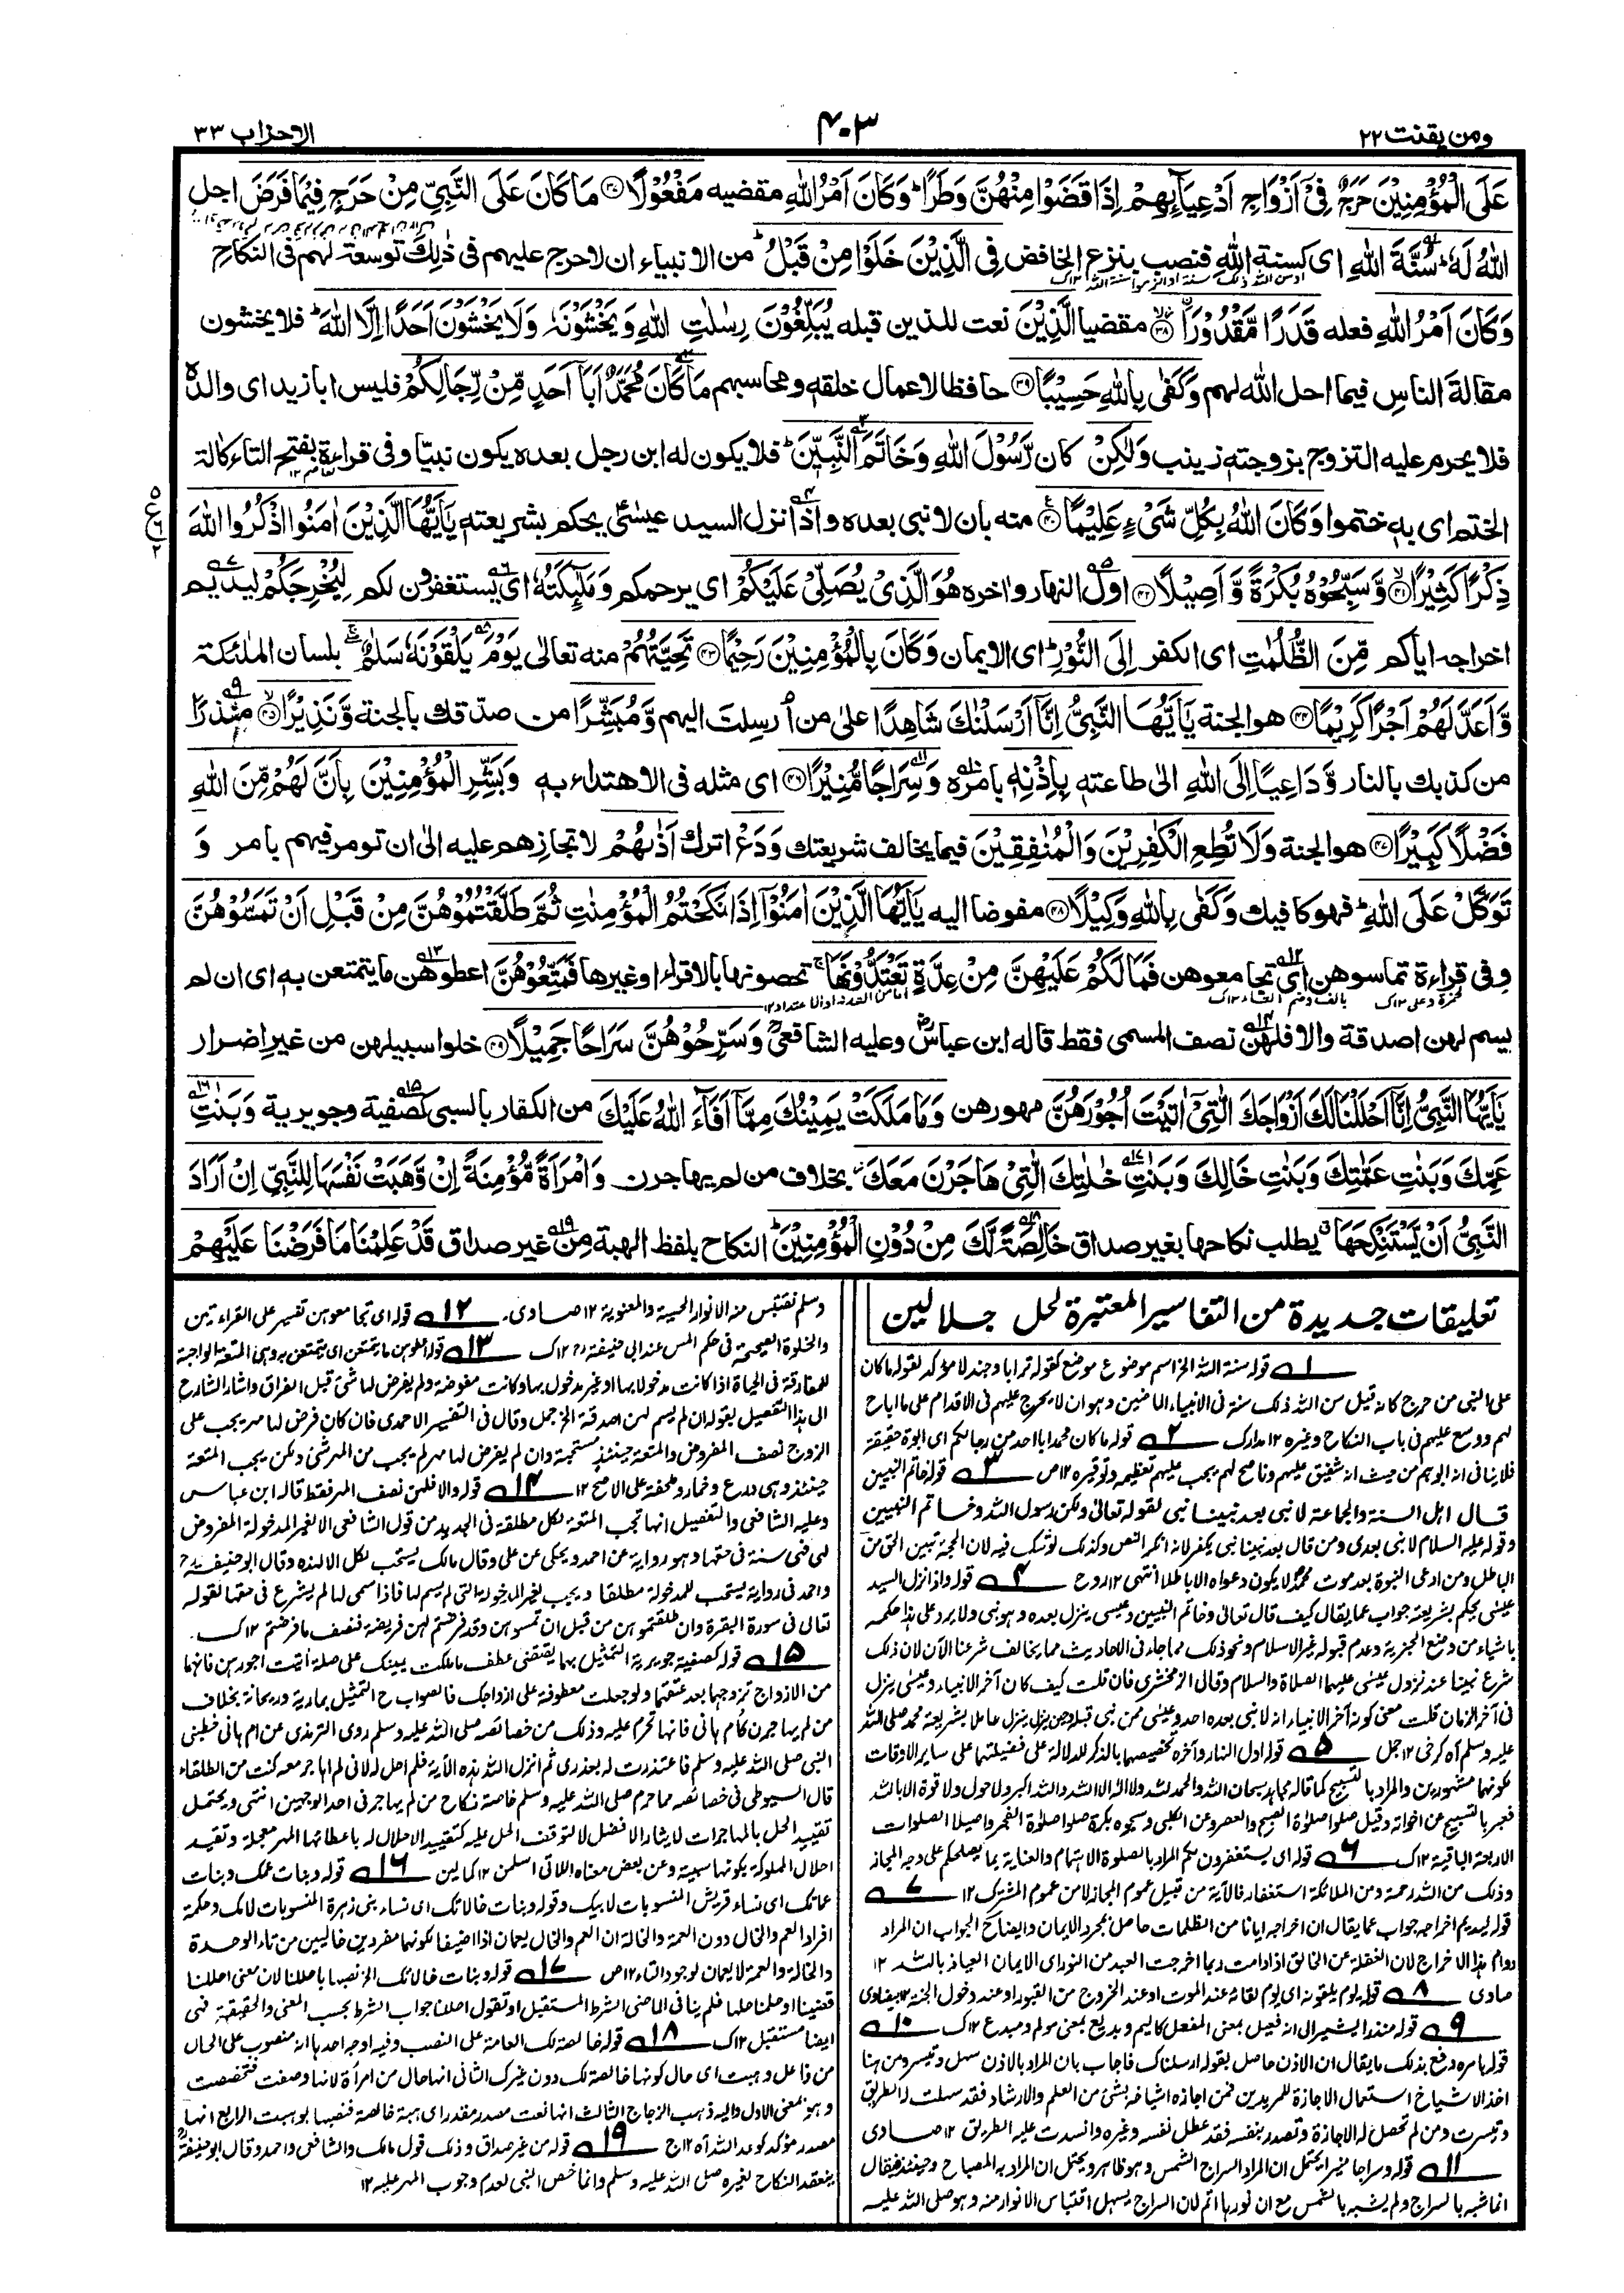 ومن يقنت ٢٢
٤٠٣
الاحزاب ٣٣
عَلَى الْمُؤْمِنِيْنَ حَرَجٌ فِيْٓ اَزْوَاجِ اَدْعِيَآئِهِمْ اِذَا قَضَوْا مِنْهُنَّ وَطَرًا ؕ وَكَانَ اَمْرُ اللهِ مقضيه مَفْعُوْلًا ۝٣٧ مَا كَانَ عَلَى النَّبِيِّ مِنْ حَرَجٍ فِيْمَا فَرَضَ احل
اللهُ لَهٗ ؕ سُنَّةَ اللهِ اى كسنة الله فنصب بنزع الخافض فِي الَّذِيْنَ خَلَوْا مِنْ قَبْلُ ؕ من الانبياء ان لاحرج عليهم فى ذلك توسعة لهم فى النكاح
وَكَانَ اَمْرُ اللهِ فعله قَدَرًا مَّقْدُوْرًا ۝٣٨ مقضيا الَّذِيْنَ نعت للذين قبله يُبَلِّغُوْنَ رِسٰلٰتِ اللهِ وَيَخْشَوْنَهٗ وَلَا يَخْشَوْنَ اَحَدًا اِلَّا اللهَ ؕ فلا يخشون
مقالة الناس فيما احل الله لهم وَكَفٰى بِاللهِ حَسِيْبًا ۝٣٩ حافظا لاعمال خلقه ومحاسبهم مَا كَانَ مُحَمَّدٌ اَبَآ اَحَدٍ مِّنْ رِّجَالِكُمْ فليس ابا زيد اى والده
فلا يحرم عليه التزوج بزوجته زينب وَلٰكِنْ كان رَّسُوْلَ اللهِ وَخَاتَمَ النَّبِيّٖنَ ؕ فلا يكون له ابن رجل بعده يكون نبيا وفى قراءة بفتح التاء كالة
الختم اى به ختموا وَكَانَ اللهُ بِكُلِّ شَيْءٍ عَلِيْمًا ۝٤٠ منه بان لا نبى بعده واذا نزل السيد عيسى يحكم بشريعته يٰٓاَيُّهَا الَّذِيْنَ اٰمَنُوا اذْكُرُوا اللهَ
ذِكْرًا كَثِيْرًا ۝٤١ وَّسَبِّحُوْهُ بُكْرَةً وَّاَصِيْلًا ۝٤٢ اول النهار واخره هُوَ الَّذِيْ يُصَلِّيْ عَلَيْكُمْ اى يرحمكم وَمَلٰٓئِكَتُهٗ اى يستغفرون لكم لِيُخْرِجَكُمْ ليديم
اخراجه اياكم مِّنَ الظُّلُمٰتِ اى الكفر اِلَى النُّوْرِ ؕ اى الايمان وَكَانَ بِالْمُؤْمِنِيْنَ رَحِيْمًا ۝٤٣ تَحِيَّتُهُمْ منه تعالى يَوْمَ يَلْقَوْنَهٗ سَلٰمٌ ۚ بلسان الملئكة
وَّاَعَدَّ لَهُمْ اَجْرًا كَرِيْمًا ۝٤٤ هو الجنة يٰٓاَيُّهَا النَّبِيُّ اِنَّآ اَرْسَلْنٰكَ شَاهِدًا على من ارسلت اليهم وَّمُبَشِّرًا من صدقك بالجنة وَّنَذِيْرًا ۝٤٥ منذرا
من كذبك بالنار وَّدَاعِيًا اِلَى اللهِ الى طاعته بِاِذْنِهٖ بامره وَسِرَاجًا مُّنِيْرًا ۝٤٦ اى مثله فى الاهتداء به وَبَشِّرِ الْمُؤْمِنِيْنَ بِاَنَّ لَهُمْ مِّنَ اللهِ
فَضْلًا كَبِيْرًا ۝٤٧ هو الجنة وَلَا تُطِعِ الْكٰفِرِيْنَ وَالْمُنٰفِقِيْنَ فيما يخالف شريعتك وَدَعْ اترك اَذٰىهُمْ لا تجازهم عليه الى ان تومر فيهم بامر وَ
تَوَكَّلْ عَلَى اللهِ ؕ فهو كافيك وَكَفٰى بِاللهِ وَكِيْلًا ۝٤٨ مفوضا اليه يٰٓاَيُّهَا الَّذِيْنَ اٰمَنُوْٓا اِذَا نَكَحْتُمُ الْمُؤْمِنٰتِ ثُمَّ طَلَّقْتُمُوْهُنَّ مِنْ قَبْلِ اَنْ تَمَسُّوْهُنَّ
وفى قراءة تماسوهن اى تجامعوهن فَمَا لَكُمْ عَلَيْهِنَّ مِنْ عِدَّةٍ تَعْتَدُّوْنَهَا ۚ تحصونها بالاقراء او غيرها فَمَتِّعُوْهُنَّ اعطوهن ما يتمتعن به اى ان لم
يسم لهن اصدقة والا فلهن نصف المسمى فقط قاله ابن عباس وعليه الشافعى وَسَرِّحُوْهُنَّ سَرَاحًا جَمِيْلًا ۝٤٩ خلوا سبيلهن من غير اضرار
يٰٓاَيُّهَا النَّبِيُّ اِنَّآ اَحْلَلْنَا لَكَ اَزْوَاجَكَ الّٰتِيْٓ اٰتَيْتَ اُجُوْرَهُنَّ مهورهن وَمَا مَلَكَتْ يَمِيْنُكَ مِمَّآ اَفَآءَ اللهُ عَلَيْكَ من الكفار بالسبى كصفية وجويرية وَبَنٰتِ
عَمِّكَ وَبَنٰتِ عَمّٰتِكَ وَبَنٰتِ خَالِكَ وَبَنٰتِ خٰلٰتِكَ الّٰتِيْ هَاجَرْنَ مَعَكَ ز بخلاف من لم يهاجرن وَامْرَاَةً مُّؤْمِنَةً اِنْ وَّهَبَتْ نَفْسَهَا لِلنَّبِيِّ اِنْ اَرَادَ
النَّبِيُّ اَنْ يَّسْتَنْكِحَهَا ق يطلب نكاحها بغير صداق خَالِصَةً لَّكَ مِنْ دُوْنِ الْمُؤْمِنِيْنَ ؕ النكاح بلفظ الهبة من غير صداق قَدْ عَلِمْنَا مَا فَرَضْنَا عَلَيْهِمْ
تعليقات جديدة من التفاسير المعتبرة لحل جلالين
١ قوله سنة الله الخ اسم موضوع موضع كقوله ترابا وجندلا مؤكد لقوله ما كان
على النبى من حرج كانه قيل سن الله ذلك سنة فى الانبياء الماضين وهو ان لا يحرج عليهم فى الاقدام على ما اباح
لهم ووسع عليهم فى باب النكاح وغيره ١٢ مدارك ٢ قوله ما كان محمد ابا احد من رجالكم اى ابوة حقيقة
فلا ينافى انه ابوهم من حيث انه شفيق عليهم وناصح لهم يجب عليهم تعظيمه وتوقيره ١٢ ص ٣ قوله خاتم النبيين
قال اهل السنة والجماعة لا نبى بعد نبينا لقوله تعالى ولكن رسول الله وخاتم النبيين
وقوله عليه السلام لا نبى بعدى ومن قال بعد نبينا نبى يكفر لانه انكر النص وكذلك لو شك فيه لان الحجة تبين الحق من
الباطل ومن ادعى النبوة بعد موت محمد لا يكون دعواه الا باطلا انتهى ١٢ روح ٤ قوله واذا نزل السيد
عيسى يحكم بشريعته جواب عما يقال كيف قال تعالى وخاتم النبيين وعيسى ينزل بعده وهو نبى ولا يرد على هذا حكمه
باشياء من وضع الجزية وعدم قبوله غير الاسلام ونحو ذلك مما جاء فى الاحاديث مما يخالف شرعنا الآن لان ذلك
شرع نبينا عند نزول عيسى عليهما الصلاة والسلام وقال الزمخشرى فان قلت كيف كان آخر الانبياء وعيسى ينزل
فى آخر الزمان قلت معنى كونه آخر الانبياء انه لا نبى بعده احد وعيسى ممن نبى قبله وحين ينزل ينزل عاملا بشريعة محمد صلى الله
عليه وسلم آه كرخى ١٢ جمل ٥ قوله اول النهار وآخره تخصيصهما بالذكر للدلالة على فضيلتهما على سائر الاوقات
لكونهما مشهودين والمراد بالتسبيح كما قاله مجاهد سبحان الله والحمد لله ولا اله الا الله والله اكبر ولا حول ولا قوة الا بالله
فعبر بالتسبيح عن اخواته وقيل صلوا صلوة الصبح والعصر وعن الكلبى وسبحوه بكرة صلوا صلوة الفجر واصيلا الصلوات
الاربعة الباقية ١٢ ك ٦ قوله اى يستغفرون لكم المراد بالصلوة الاهتمام والعناية بما يصلحكم على وجه المجاز
وذلك من الله رحمة ومن الملائكة استغفار فالآية من قبيل عموم المجاز لا من عموم المشترك ١٢ ٧
قوله ليديم اخراجه جواب عما يقال ان اخراجه ايانا من الظلمات حاصل بمجرد الايمان وايضاح الجواب ان المراد
دوام هذا الاخراج لان الغفلة عن الخالق اذا دامت ربما اخرجت العبد من النور اى الايمان العياذ بالله ١٢
صاوى ٨ قوله يوم يلقونه اى يوم لقائه عند الموت او عند الخروج من القبور او عند دخول الجنة ١٢ بيضاوى
٩ قوله منذرا يشير الى انه فعيل بمعنى المفعل كاليم وبديع بمعنى مولم ومبدع ١٢ ك ١٠
قوله بامره دفع بذلك ما يقال ان الاذن حاصل بقوله ارسلناك فاجاب بان المراد بالاذن سهل وتيسر ومن هنا
اخذ الاشياخ استعمال الاجازة للمريدين فمن اجازه اشياخه بشئ من العلم والارشاد فقد سهلت له الطريق
وتيسرت ومن لم تحصل له الاجازة وتصدر بنفسه فقد عطل نفسه وغيره وانسدت عليه الطريق ١٢ صاوى
١١ قوله وسراجا منيرا يحتمل ان المراد السراج الشمس وهو ظاهر ويحتمل ان المراد به المصباح وحينئذ فيقال
انما شبه بالسراج ولم يشبه بالشمس مع ان نورها اتم لان السراج يسهل اقتباس الانوار منه وهو صلى الله عليه
وسلم تقتبس منه الانوار الحسية والمعنوية ١٢ صاوى. ١٢ قوله اى تجامعوهن تفسير على القراءتين
والخلوة الصحيحة فى حكم المس عند ابى حنيفة ١٢ ك ١٣ قوله اعطوهن ما يتمتعن اى يتمتعن به وهى المتعة الواجبة
للمفارقة فى الحياة اذا كانت مدخولا بها او غير مدخول بها وكانت مفوضة ولم يفرض لها شئ قبل الفراق واشار الشارح
الى هذا التفصيل بقوله ان لم يسم لهن اصدقة الخ جمل وقال فى التفسير الاحمدى فان كان فرض لها مهر يجب على
الزوج نصف المفروض والمتعة حينئذ مستحبة وان لم يفرض لها مهر لم يجب من المهر شئ ولكن يجب المتعة
حينئذ وهى درع وخمار وملحفة على الاصح ١٢ ١٤ قوله والا فلهن نصف المهر فقط قاله ابن عباس
وعليه الشافعى والتفصيل انها تجب المتعة لكل مطلقة فى الجديد من قول الشافعى الا لغير المدخولة المفروض
لها فهى سنة فى حقها وهو رواية عن احمد ويحكى عن على وقال مالك يستحب لكل الا لهذه وقال ابو حنيفة
واحمد فى رواية يستحب للمدخولة مطلقا ويجب لغير المدخولة التى لم يسم لها فاذا سمى لها لم يشرع فى حقها لقوله
تعالى فى سورة البقرة وان طلقتموهن من قبل ان تمسوهن وقد فرضتم لهن فريضة فنصف ما فرضتم ١٢ ك.
١٥ قوله كصفية وجويرية التمثيل بهما يقتضى عطف ما ملكت يمينك على صلة آتيت اجورهن فانهما
من الازواج تزوجهما بعد عتقهما ولو جعلت معطوفة على ازواجك فالصواب ح التمثيل بمارية وريحانة بخلاف
من لم يهاجرن كأم هانى فانها تحرم عليه وذلك من خصائصه صلى الله عليه وسلم روى الترمذى عن ام هانى خطبنى
النبى صلى الله عليه وسلم فاعتذرت له بعذرى ثم انزل الله هذه الآية فلم احل له لانى لم اهاجر معه كنت من الطلقاء
قال السيوطى فى خصائصه مما حرم صلى الله عليه وسلم خاصة نكاح من لم يهاجر فى احد الوجهين انتهى ويحتمل
تقييد الحل بالمهاجرات لايثار الافضل لا لتوقف الحل عليه كتقييد الاحلال له باعطائها المهر معجلة وتقييد
احلال المملوكة بكونها سبية وعن بعض معناه اللاتى اسلمن ١٢ كمالين ١٦ قوله وبنات عمك وبنات
عماتك اى نساء قريش المنسوبات لابيك وقوله وبنات خالاتك اى نساء بنى زهرة المنسوبات لامك وحكمة
افراد العم والخال دون العمة والخالة ان العم والخال يعمان اذا اضيفا لكونهما مفردين خاليين من تاء الوحدة
والخالة والعمة لا يعمان لوجود التاء ١٢ ص ١٧ قوله وبنات خالاتك الخ نصبها باحللنا لان معنى احللنا
قضينا او حلنا حلها فلم ينافى الماضى الشرط المستقبل او تقول احللنا جواب الشرط بحسب المعنى والحقيقة فهى
ايضا مستقبل ١٢ ك ١٨ قوله خالصة لك العامة على النصب وفيه اوجه احدها انه منصوب على الحال
من فاعل وهبت اى حال كونها خالصة لك دون غيرك الثانى انها حال من امرأة لانها وصفت فتخصصت
وهو بمعنى الاول واليه ذهب الزجاج الثالث انها نعت مصدر مقدر اى هبة خالصة فنصبها بوهبت الرابع انها
مصدر مؤكد كوعد الله آه ١٢ ج ١٩ قوله من غير صداق وذلك قول مالك والشافعى واحمد وقال ابو حنيفة
ينعقد النكاح لغيره صلى الله عليه وسلم وانما خص النبى لعدم وجوب المهر عليه ١٢